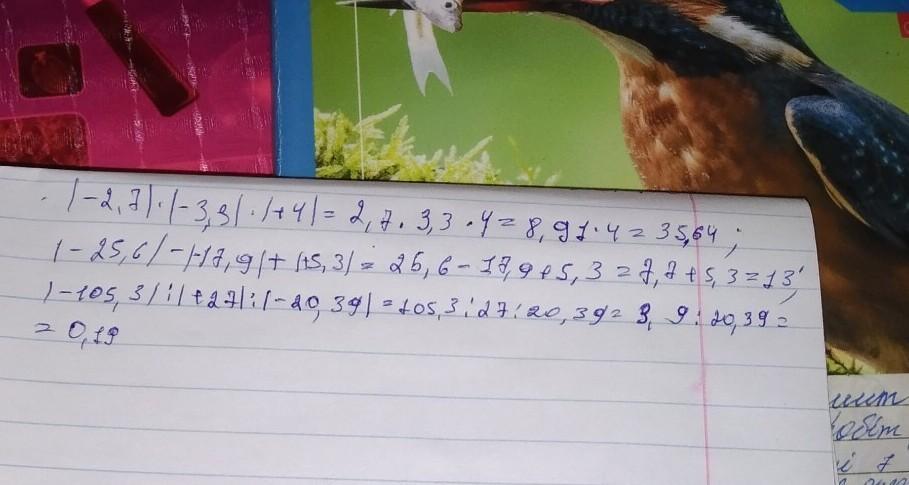 |-2,7|·|-3,3|·|+4|= 2,7·3,3·4=8,91·4=35,64;
|-25,6|-|-17,9|+|+5,3|=25,6-17,9+5,3=7,7+5,3=13;
|-105,3|:|+27|:|-20,39|=105,3:27:20,39=3,9:20,39=
=0,19
і 7